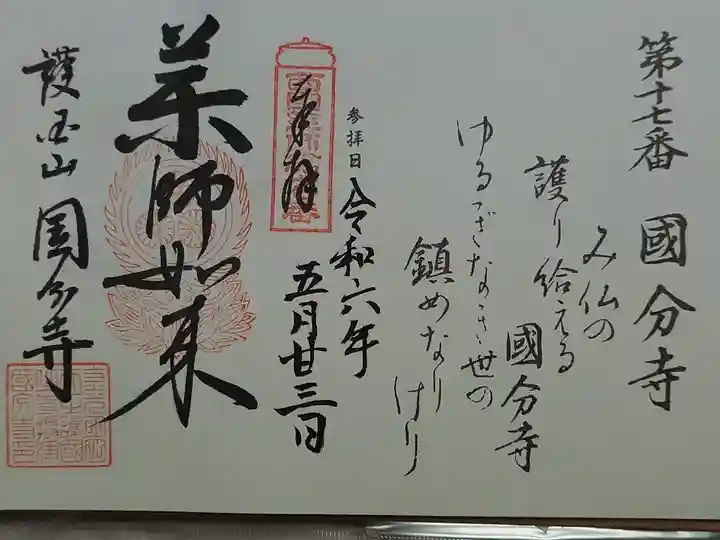 第十七番 國分寺
み仏の
護り給える
國分寺
ゆるぎなき世の
鎮めなり
けり
参拝日 令和六年
五月廿三日
奉拝
薬師如来
護国山 國分寺